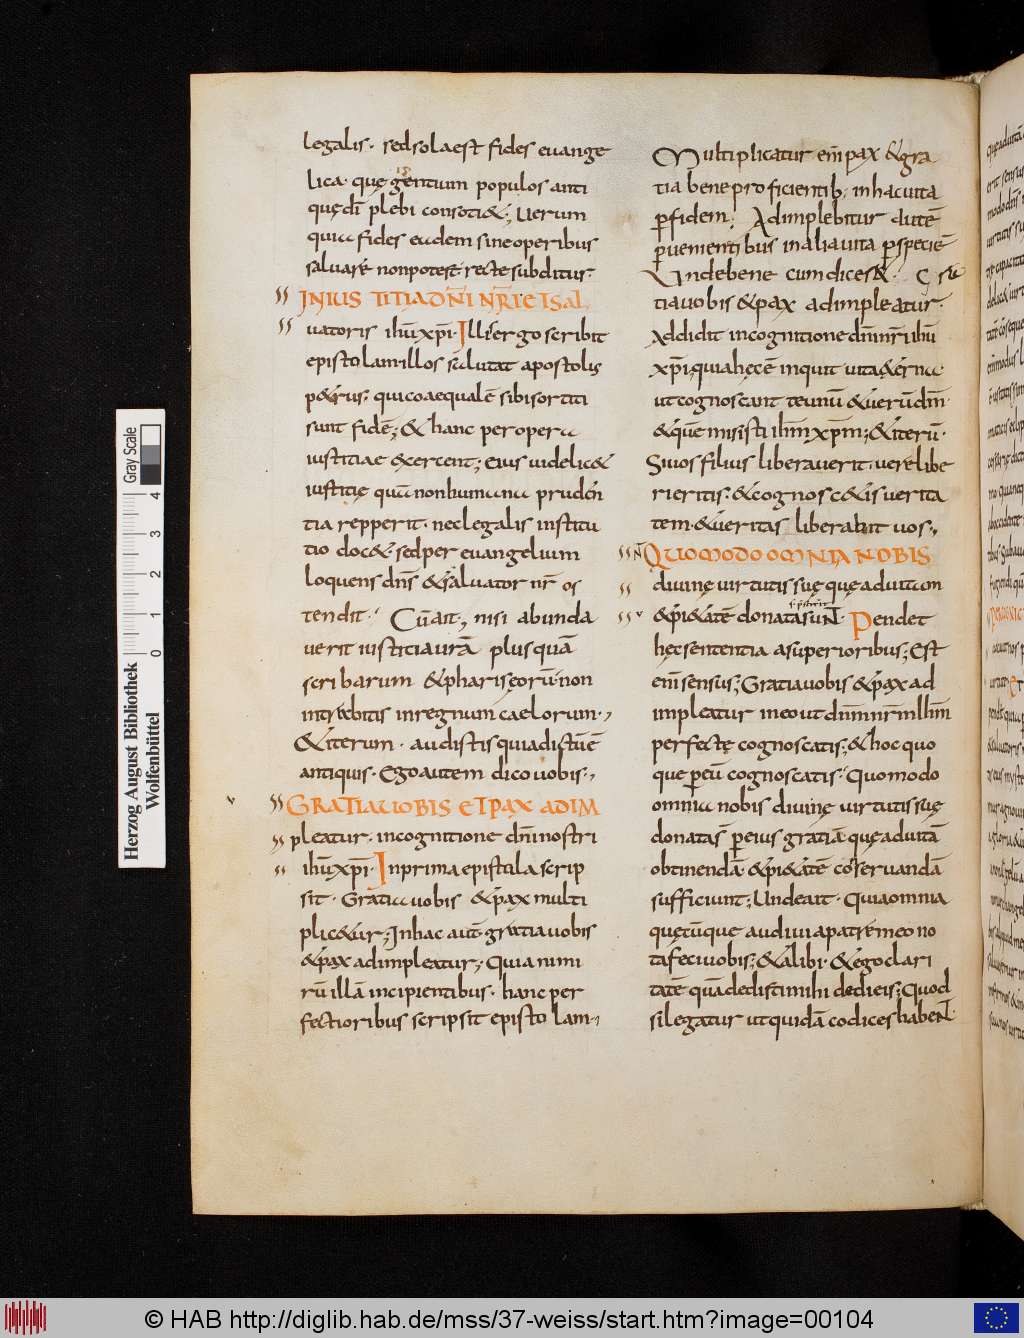 legalis. sed sola est fides euange
lica. quę gentium populos anti
quę dī plebi consoci&; Uerum
quia fides eadem sine operibus
saluare non potest recte subditur.
IN IUSTITIA DNI NRI ET SAL
uatoris ihu xpi. Illis ergo scribit
epistolam illos salutat apostolis
p&rus. qui coaequalē sibi sortiti
sunt fidē; & hanc per opera
iustitiae exercent; eius uidelic&
iustitię quā non humana pruden
tia repperit. nec legalis institu
tio doc& sed per euangelium
loquens dns & saluator nr os
tendit. Cū ait, nisi abunda
uerit iustitia urā plus quā
scribarum & phariseorū. non
intrabitis in regnum caelorum.,
& iterum. audistis quia dictū ē
antiquis. Ego autem dico uobis.,
GRATIA UOBIS ET PAX ADIM
pleatur. in cognitione dni nostri
ihu xpi. In prima epistula scrip
sit. Gratia uobis & pax multi
plic&ur; In hac aut gratia uobis
& pax adimpleatur; Quia nimi
rū illā incipientibus. hanc per
fectioribus scripsit epistolam.,
Multiplicatur enī pax & gra
tia bene proficientib; in hac uita
p fidem; Adimplebitur autē
puenientibus in alia uita p speciē
Unde bene cum dices&. Gra
tia uobis & pax adimpleatur.
Addidit in cognitione dni nri ihu
xpi; quia hęc ē inquit uita &erna.
ut cognoscant te unū & uerū dm.
& quē misisti ihm xpm; & iterū.
Si uos filius liberauerit. uere libe
ri eritis. & cognosc&is uerita
tem. & ueritas liberabit uos.,
QUOMODO OMNIA NOBIS
diuinę uirtutis suę quę ad uitam
& pi&atē donata sunt. Pendet
hęc sententia a superioribus; Est
enī sensus; Gratia uobis & pax ad
impleatur in eo ut dnm nrm ihm
perfectę cognoscatis; & hoc quo
que p eū cognoscatis. Quomodo
omnia nobis diuinę uirtutis suę
donata s p eius gratiā. quę ad uitā
obtinendā. & pi&atē conseruandā
sufficiunt; Unde ait. Quia omnia
quęcūque audiui a patre meo no
ta feci uobis; & alibi. & ego clari
tatē quā dedisti mihi dedi eis; Quod
si legatur ut quidā codices habent.
Herzog August Bibliothek
Wolfenbüttel
Gray Scale
0 1 2 3 4
© HAB http://diglib.hab.de/mss/37-weiss/start.htm?image=00104